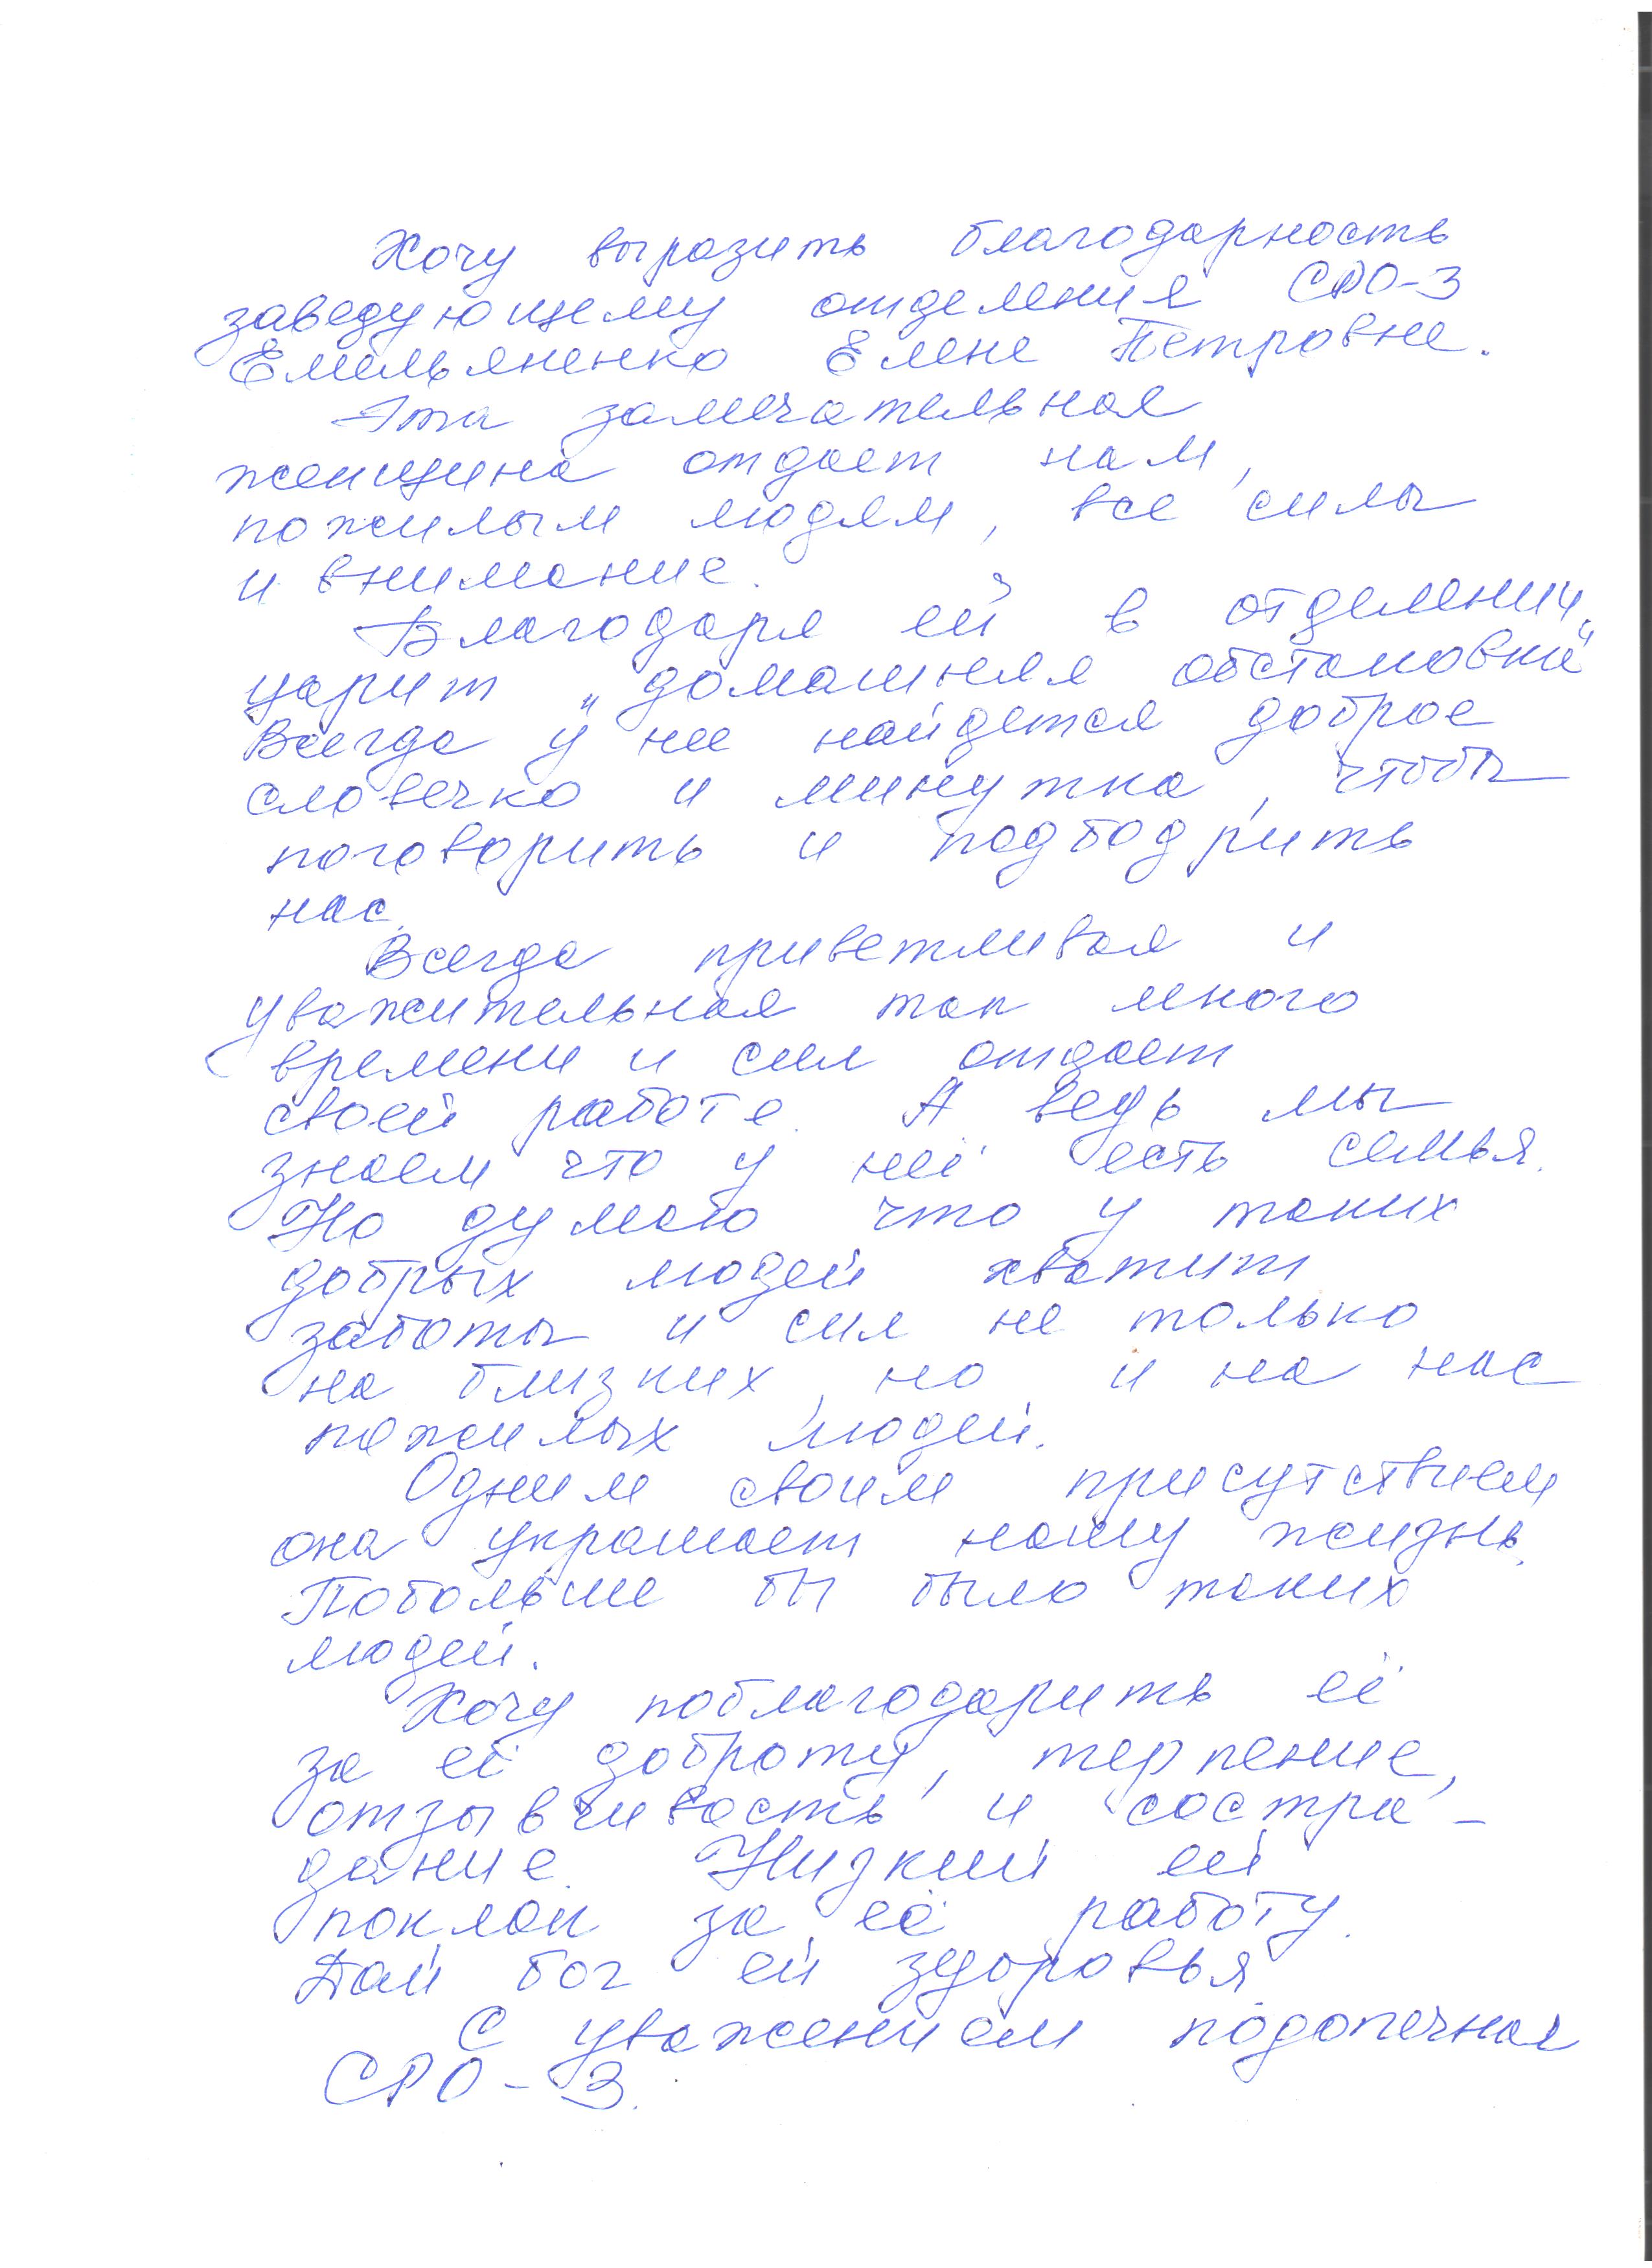 Хочу выразить благодарность
заведующему отделения СРО-3
Емельяненко Елене Петровне.
Эта замечательная
женщина отдает нам,
пожилым людям, все силы
и внимание.
Благодаря ей в отделении
царит „домашняя обстановка"
Всегда у нее найдется доброе
словечко и минутка, чтобы
поговорить и подбодрить
нас.
Всегда приветливая и
уважительная так много
времени и сил отдает
своей работе. А ведь мы
знаем что у неё есть семья.
Но думаю что у таких
добрых людей хватит
заботы и сил не только
на близких, но и на нас
пожилых людей.
Одним своим присутствием
она украшает нашу жизнь.
Побольше бы было таких
людей.
Хочу поблагодарить её
за её доброту, терпение,
отзывчивость и состра-
дание. Низкий ей
поклон за её работу.
Дай бог ей здоровья
С уважением подопечная
СРО-3.